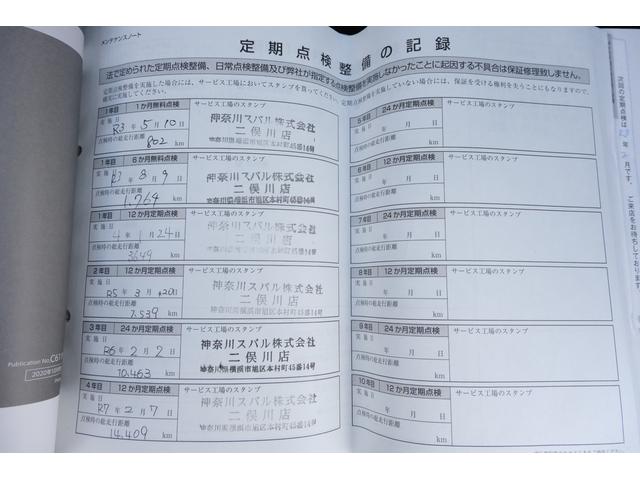 メンテナンスノート
定期点検整備の記録
法で定められた定期点検整備、日常点検整備及び弊社が指定する点検整備を実施しなかったことに起因する不具合は保証修理致しません。
定期点検整備を実施した場合には、サービス工場においてスタンプを貰ってください。定期点検整備を実施していない場合には、保証を受ける権利を失うことにもなりますので、
確実に実施してください。
1年目 1か月無料点検 サービス工場のスタンプ
実施日
R3年5月10日
点検時の総走行距離
802 km
神奈川スバル株式会社
二俣川店
神奈川県横浜市旭区本村町45番14号
1年目 6か月無料点検 サービス工場のスタンプ
実施日
R3年8月9日
点検時の総走行距離
1,764 km
神奈川スバル株式会社
二俣川店
神奈川県横浜市旭区本村町45番14号
1年目 12か月定期点検 サービス工場のスタンプ
実施日
4年1月24日
点検時の総走行距離
3649 km
神奈川スバル株式会社
二俣川店
神奈川県横浜市旭区本村町45番14号
2年目 12か月定期点検 サービス工場のスタンプ
実施日
R5年3月20日
点検時の総走行距離
7.539 km
神奈川スバル株式会社
二俣川店
神奈川県横浜市旭区本村町45番14号
3年目 24か月定期点検 サービス工場のスタンプ
実施日
R6年2月2日
点検時の総走行距離
10,463 km
神奈川スバル株式会社
二俣川店
神奈川県横浜市旭区本村町45番14号
4年目 12か月定期点検 サービス工場のスタンプ
実施日
R7年2月7日
点検時の総走行距離
14,409 km
神奈川スバル株式会社
二俣川店
神奈川県横浜市旭区本村町45番14号
5年目 24か月定期点検 サービス工場のスタンプ
実施日
年 月 日
点検時の総走行距離
km
6年目 12か月定期点検 サービス工場のスタンプ
実施日
年 月 日
点検時の総走行距離
km
7年目 24か月定期点検 サービス工場のスタンプ
実施日
年 月 日
点検時の総走行距離
km
8年目 12か月定期点検 サービス工場のスタンプ
実施日
年 月 日
点検時の総走行距離
km
9年目 24か月定期点検 サービス工場のスタンプ
実施日
年 月 日
点検時の総走行距離
km
10年目 12か月定期点検 サービス工場のスタンプ
実施日
年 月 日
点検時の総走行距離
km
次回の定期点検は
年 月です。ご来店をお待ちしております。
Publication No.